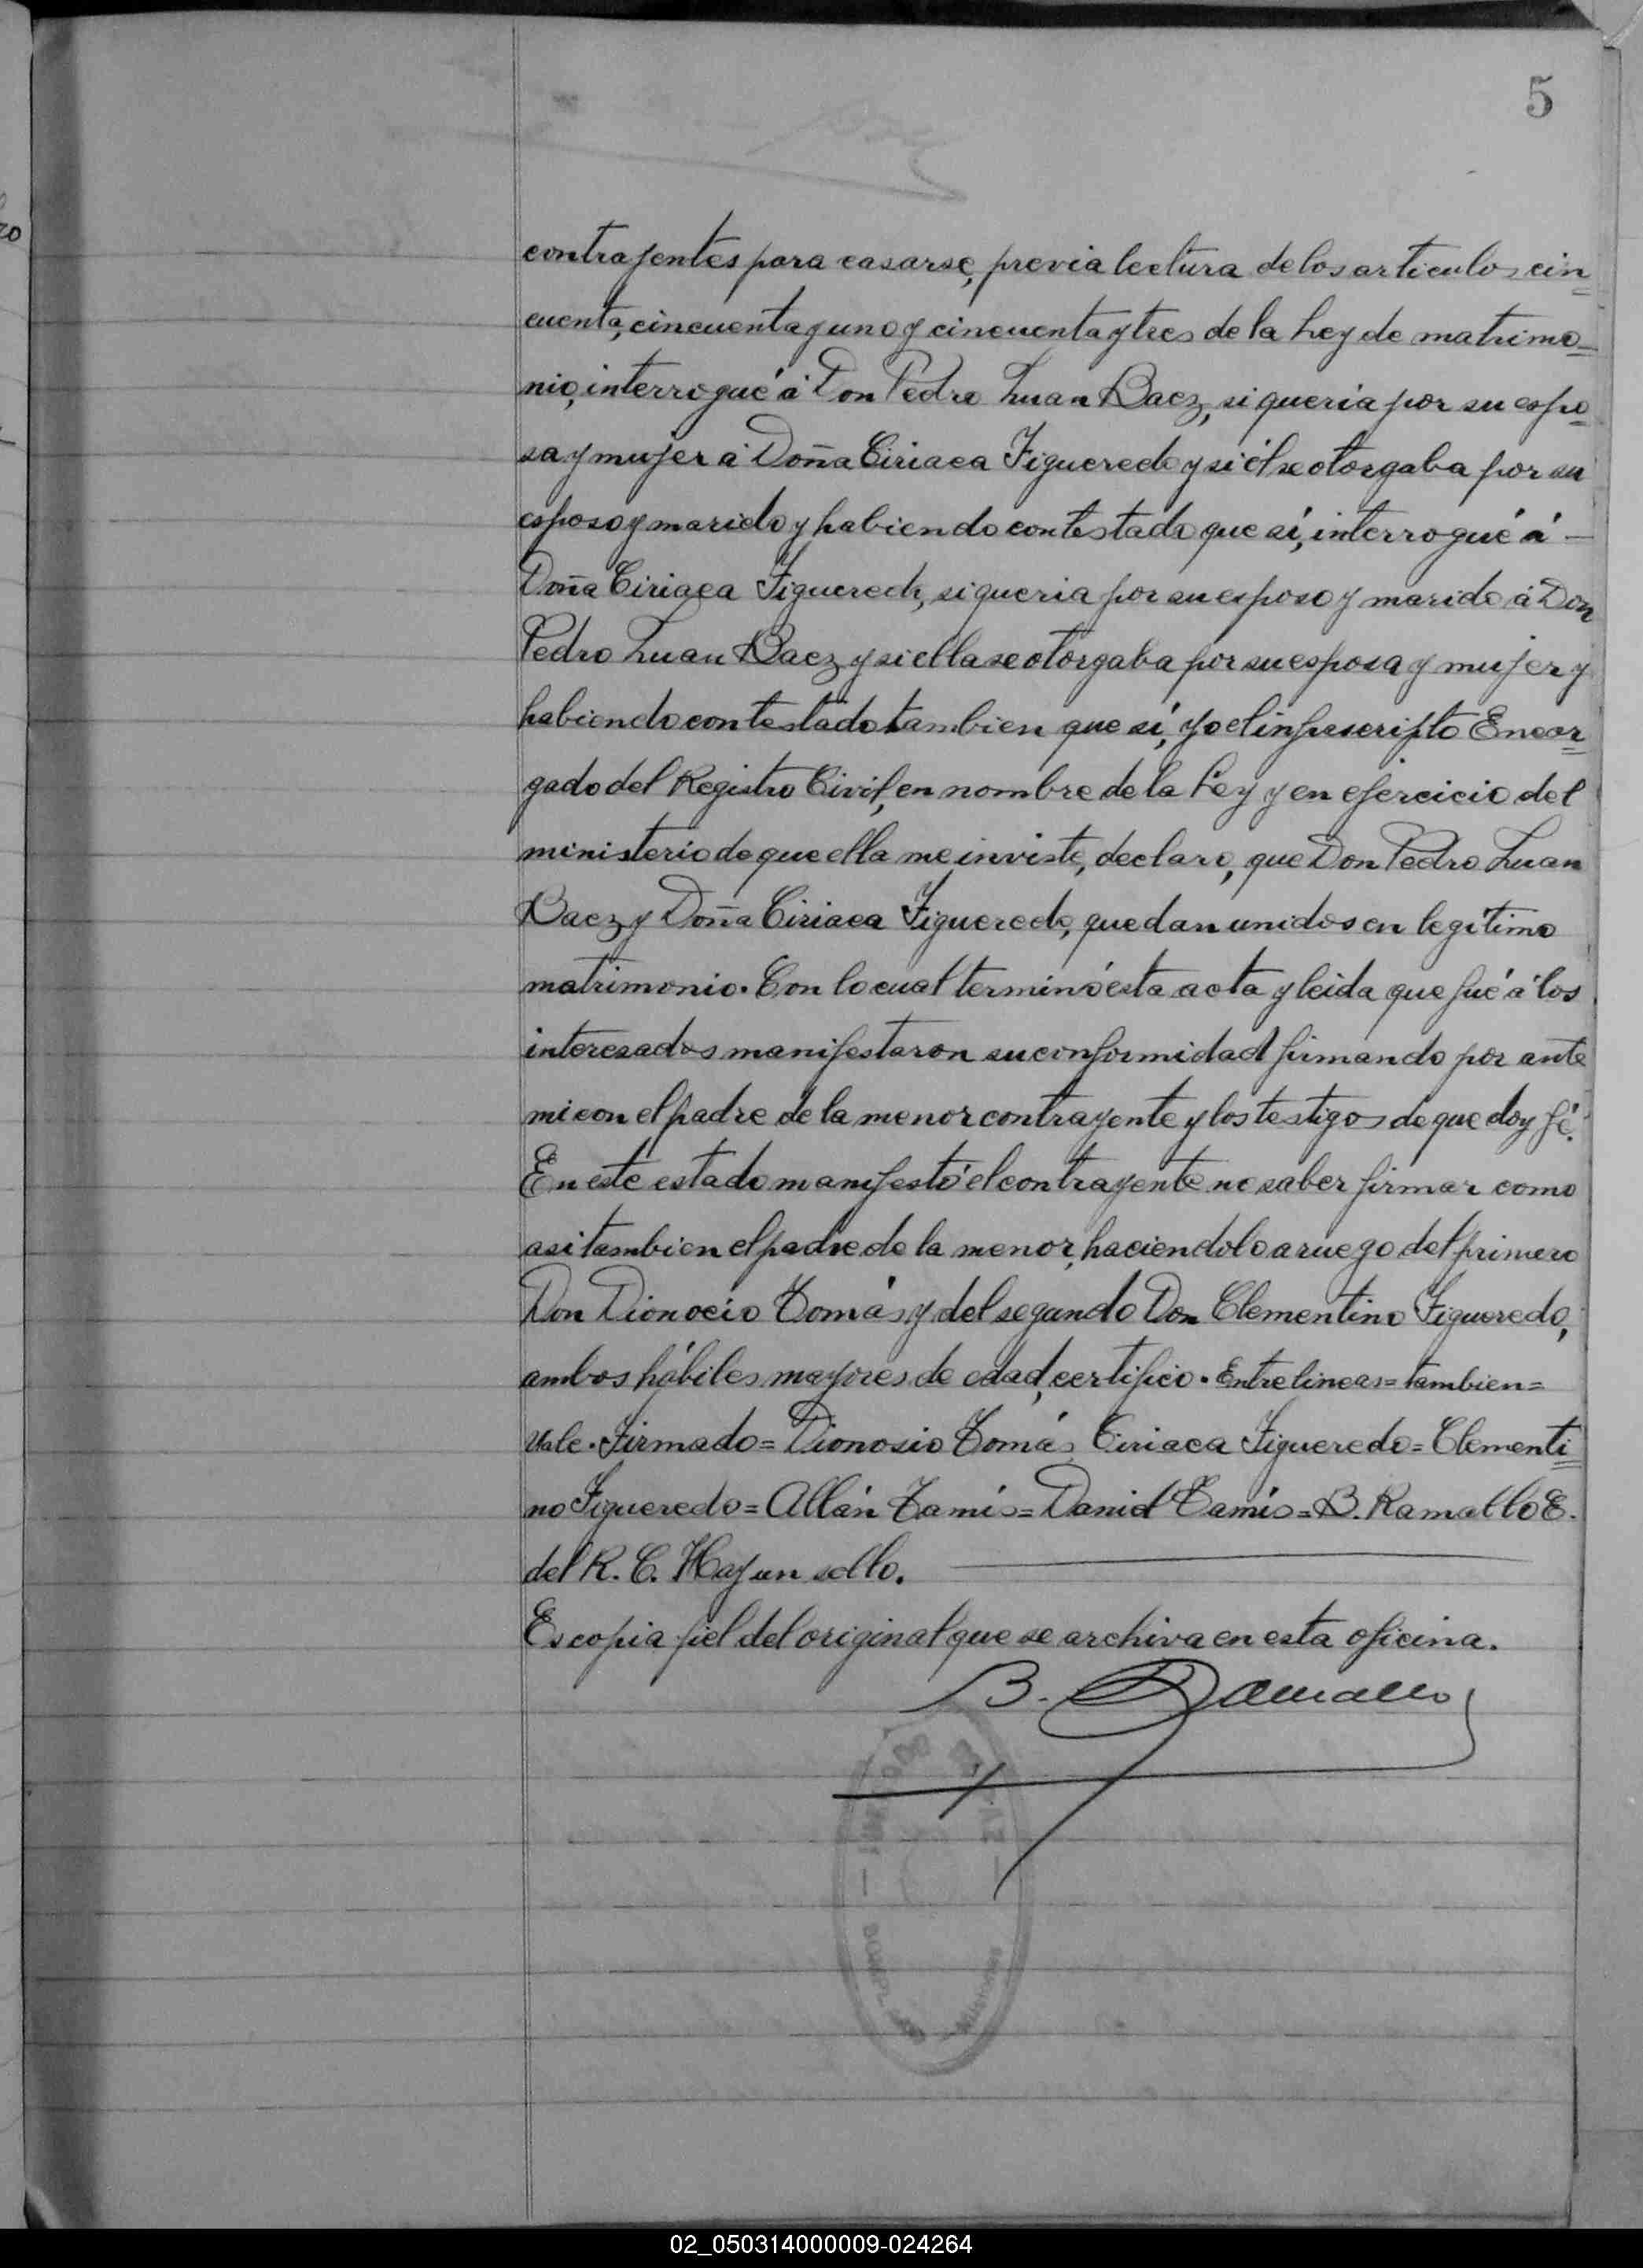 5
contrayentes para casarse, previa lectura de los articulos cin
cuenta, cincuenta y uno y cincuenta y tres de la Ley de matrimo_
nio, interrogué á Don Pedro Luan Baez, si queria por su espo
sa y mujer á Doña Ciriaca Figueredo y si él se otorgaba por su
esposo y marido y habiendo contestado que sí, interrogué á —
Doña Ciriaca Figueredo, si queria por su esposo y marido á Don
Pedro Luan Baez y si ella se otorgaba por su esposa y mujer y
habiendo contestado tambien que sí, yo el infrascripto Encar
gado del Registro Civil, en nombre de la Ley y en ejercicio del
ministerio de que ella me inviste, declaro, que Don Pedro Luan
Baez y Doña Ciriaca Figueredo, quedan unidos en legítimo
matrimonio. Con lo cual terminó ésta acta y leida que fué á los
interesados manifestaron su conformidad firmando por ante
mi con el padre de la menor contrayente y los testigos de que doy fé.
En este estado manifestó el contrayente no saber firmar como
asi tambien el padre de la menor, haciendolo a ruego del primero
Don Dionocio Tomás y del segundo Don Clementino Figueredo,
ambos hábiles mayores de edad, certifico. Entre lineas=tambien=
Vale. Firmado=Dionosio Tomás Ciriaca Figueredo=Clementi
no Figueredo=Allán Tamis=Daniel Tamis=B. Ramallo E.
del R. C. Hay un sello.
Es copia fiel del original que se archiva en esta oficina.
B. Ramallo
02_050314000009-024264